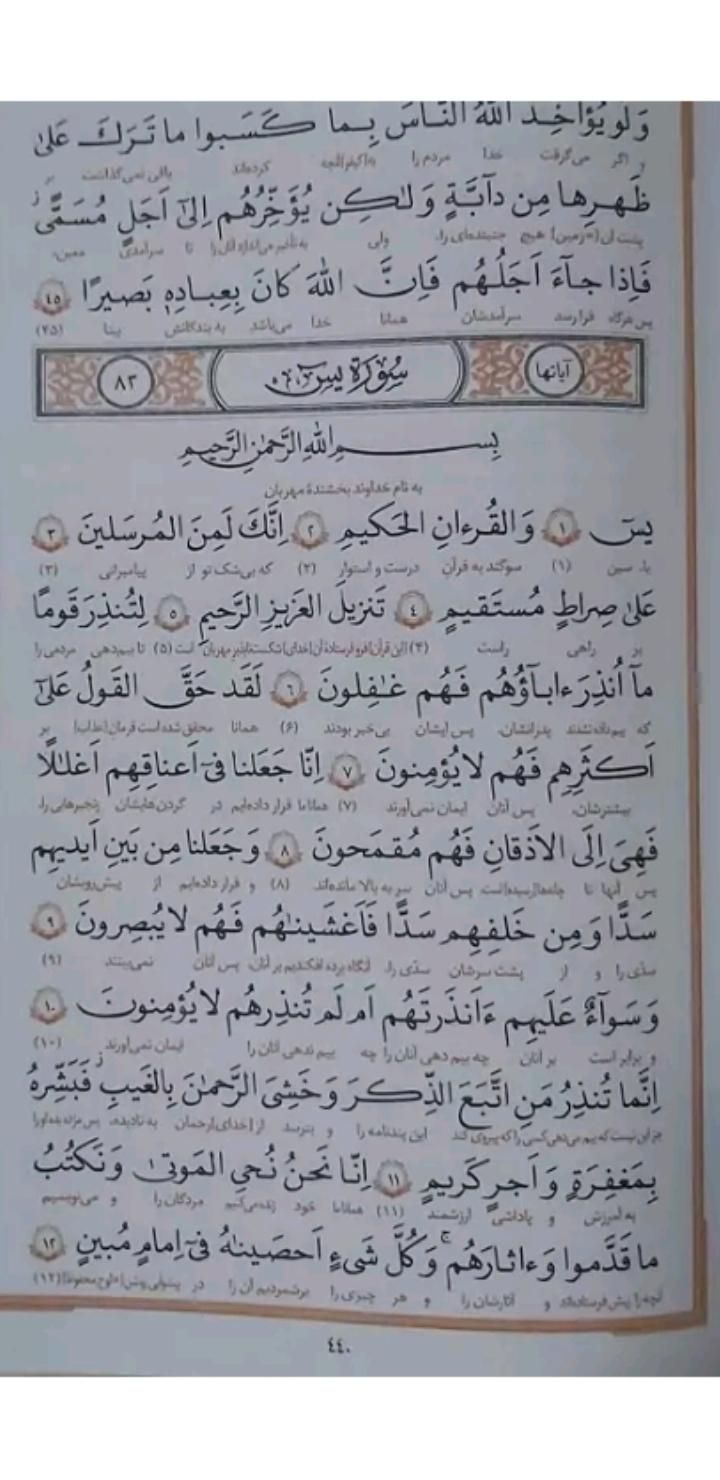 وَلَو يُؤَاخِذُ اللّٰهُ النّاسَ بِما كَسَبوا ما تَرَكَ عَلىٰ
و اگر می‌گرفت خدا مردم را به [کیفر] آنچه کرده‌اند باقی نمی‌گذاشت بر
ظَهرِها مِن دآبَّةٍ وَلٰكِن يُؤَخِّرُهُم اِلىٰٓ اَجَلٍ مُسَمًّى ۖ
پشت آن [=زمین] هیچ جنبنده‌ای را، ولی به تأخیر می‌اندازد آنان را تا سرآمدی معین،
فَاِذا جآءَ اَجَلُهُم فَاِنَّ اللّٰهَ كانَ بِعِبادِهٖ بَصيرًا ٤٥
پس هرگاه فرا رسد سرآمدشان همانا خدا می‌باشد به بندگانش بینا (۴۵)
آیاتها سُورَةُ يسٓ ٨٣
بِسمِ اللّٰهِ الرَّحمٰنِ الرَّحيمِ
به نام خداوند بخشندهٔ مهربان
يسٓ ١ وَالقُرءانِ الحَكيمِ ٢ اِنَّكَ لَمِنَ المُرسَلينَ ٣
یا، سین (۱) سوگند به قرآنِ درست و استوار (۲) که بی‌شک تو از پیامبرانی (۳)
عَلىٰ صِراطٍ مُستَقيمٍ ٤ تَنزيلَ العَزيزِ الرَّحيمِ ٥ لِتُنذِرَ قَومًا
بر راهی راست (۴) [این قرآن] فرو فرستادهٔ آن [خدای] شکست‌ناپذیر مهربان است (۵) تا بیم‌دهی مردمی را
مآ اُنذِرَ ءابآؤُهُم فَهُم غٰفِلونَ ٦ لَقَد حَقَّ القَولُ عَلىٰٓ
که بیم داده نشدند پدرانشان، پس ایشان بی‌خبر بودند (۶) همانا محقق شده است فرمان [عذاب] بر
اَكثَرِهِم فَهُم لا يُؤمِنونَ ٧ اِنّا جَعَلنا فىٓ اَعناقِهِم اَغلٰلًا
بیشترشان، پس آنان ایمان نمی‌آورند (۷) همانا ما قرار داده‌ایم در گردن‌هایشان زنجیرهایی را،
فَهِىَ اِلَى الاَذقانِ فَهُم مُقمَحونَ ٨ وَجَعَلنا مِن بَينِ اَيديهِم
پس آنها تا چانه‌ها[رسیده] است، پس آنان سر به بالا مانده‌اند (۸) و قرار داده‌ایم از پیش‌رویشان
سَدًّا وَمِن خَلفِهِم سَدًّا فَاَغشَينٰهُم فَهُم لا يُبصِرونَ ٩
سدّی را و از پشت سرشان سدّی را، آنگاه پرده افکندیم بر آنان، پس آنان نمی‌بینند (۹)
وَسَوآءٌ عَلَيهِم ءَاَنذَرتَهُم اَم لَم تُنذِرهُم لا يُؤمِنونَ ١٠
و برابر است بر آنان چه بیم دهی آنان را چه بیم ندهی آنان را ایمان نمی‌آورند (۱۰)
اِنَّما تُنذِرُ مَنِ اتَّبَعَ الذِّكرَ وَخَشِىَ الرَّحمٰنَ بِالغَيبِ ۖ فَبَشِّرهُ
جز این نیست که بیم می‌دهی کسی را که پیروی کند این پندنامه را و بترسد از [خدای] رحمان به نادیده، پس مژده بده او را
بِمَغفِرَةٍ وَاَجرٍ كَريمٍ ١١ اِنّا نَحنُ نُحىِ المَوتىٰ وَنَكتُبُ
به آمرزش و پاداشی ارزشمند (۱۱) همانا ما خود زنده می‌کنیم مردگان را و می‌نویسیم
ما قَدَّموا وَءاثارَهُم ۚ وَكُلَّ شَىءٍ اَحصَينٰهُ فىٓ اِمامٍ مُبينٍ ١٢
آنچه را پیش فرستاده‌اند و آثارشان را و هر چیزی را برشمردیم آن را در پیشوایی روشن [=لوح محفوظ] (۱۲)
٤٤٠